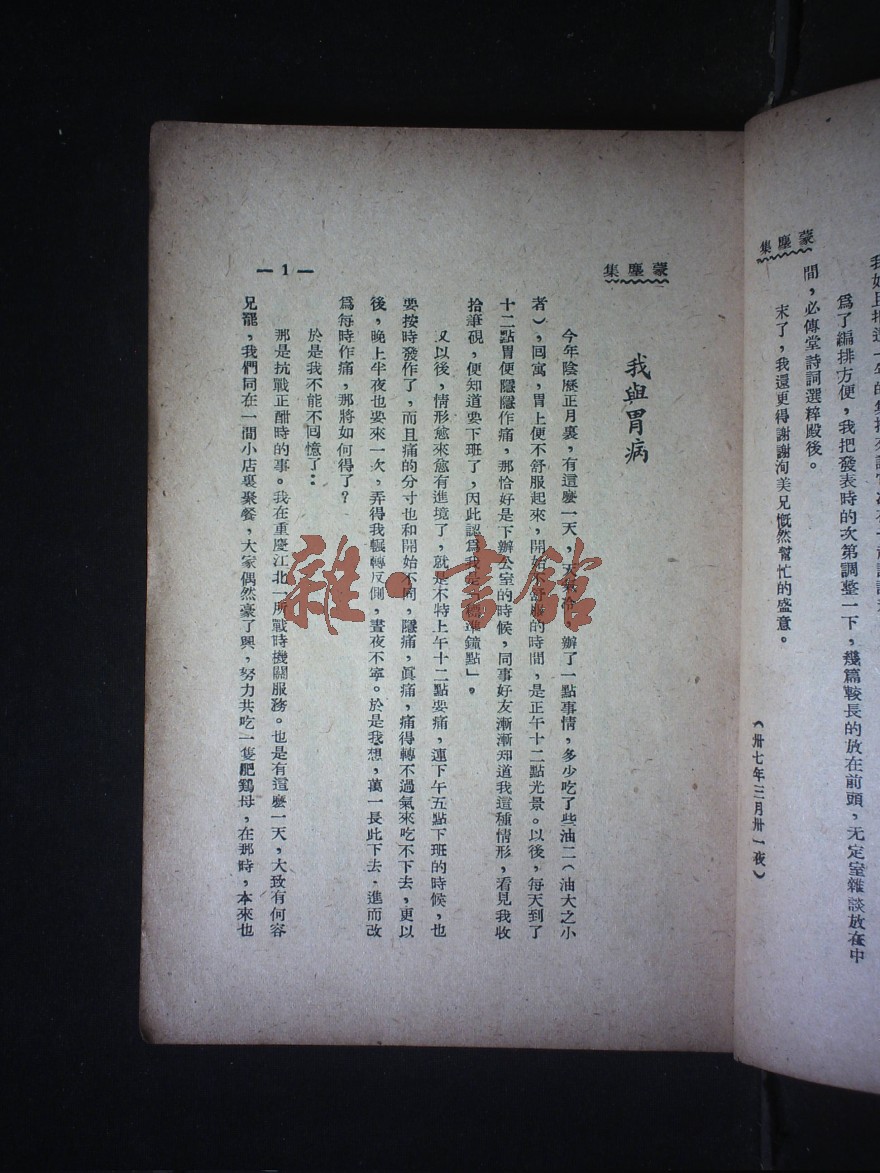 為了編排方便，我把發表時的次第調整一下，幾篇較長的放在前頭，无定室雜談放在中
間，必傳堂詩詞選粹殿後。
末了，我還更得謝謝洵美兄慨然幫忙的盛意。
（卅七年三月卅一夜）
蒙塵集
蒙塵集
我與胃病
今年陰歷正月裏，有這麼一天，天氣冷，辦了一點事情，多少吃了些油二（油大之小
者），回寓，胃上便不舒服起來，開始不舒服的時間，是正午十二點光景。以後，每天到了
十二點胃便隱隱作痛，那恰好是下辦公室的時候，同事好友漸漸知道我這種情形，看見我收
拾筆硯，便知道要下班了，因此認爲我 鐘點」。
又以後，情形愈來愈有進境了，就是不特上午十二點要痛，連下午五點下班的時候，也
要按時發作了，而且痛的分寸也和開始不同，隱痛，眞痛，痛得轉不過氣來吃不下去，更以
後，晚上半夜也要來一次，弄得我輾轉反側，晝夜不寧。於是我想，萬一長此下去，進而改
爲每時作痛，那將如何得了？
於是我不能不回憶了：
那是抗戰正酣時的事。我在重慶江北一所戰時機關服務。也是有這麼一天，大致有何容
兄罷，我們同在一間小店裏聚餐，大家偶然豪了興，努力共吃一隻肥鷄母，在那時，本來也
— 1 —
雜·書館